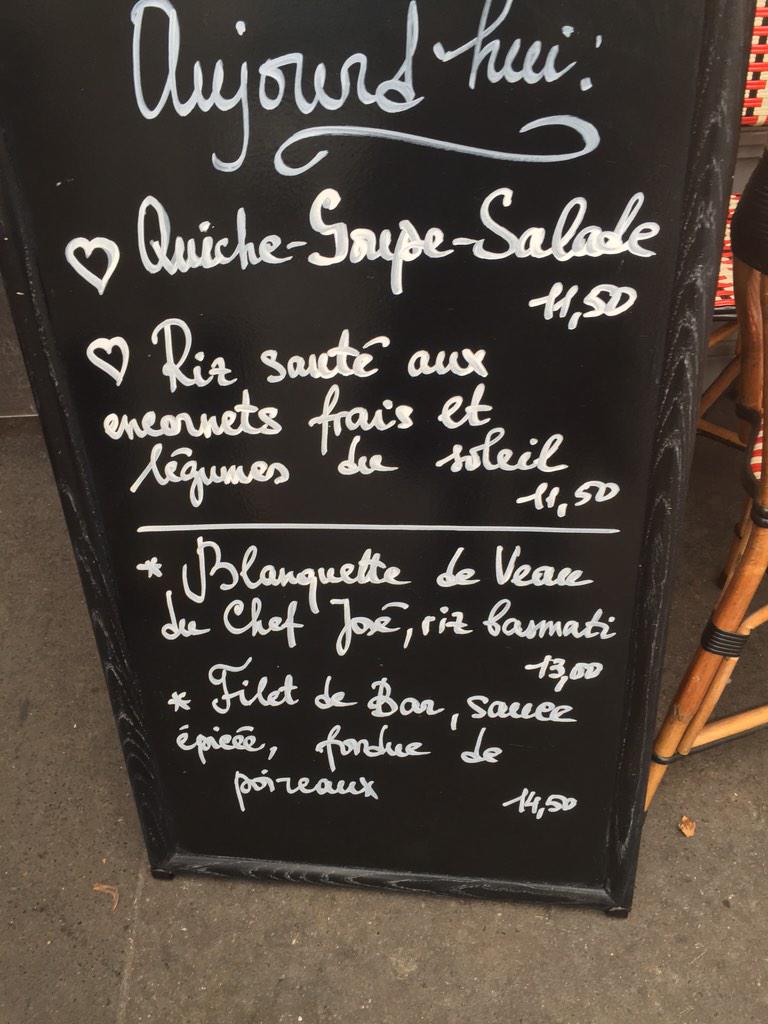 Aujourd'hui:
Quiche-Soupe-Salade
11,50
Riz sauté aux
encornets frais et
légumes du soleil
11,50
* Blanquette de Veau
du Chef José, riz basmati
13,00
* Filet de Bar, sauce
épicée, fondue de
poireaux
14,50